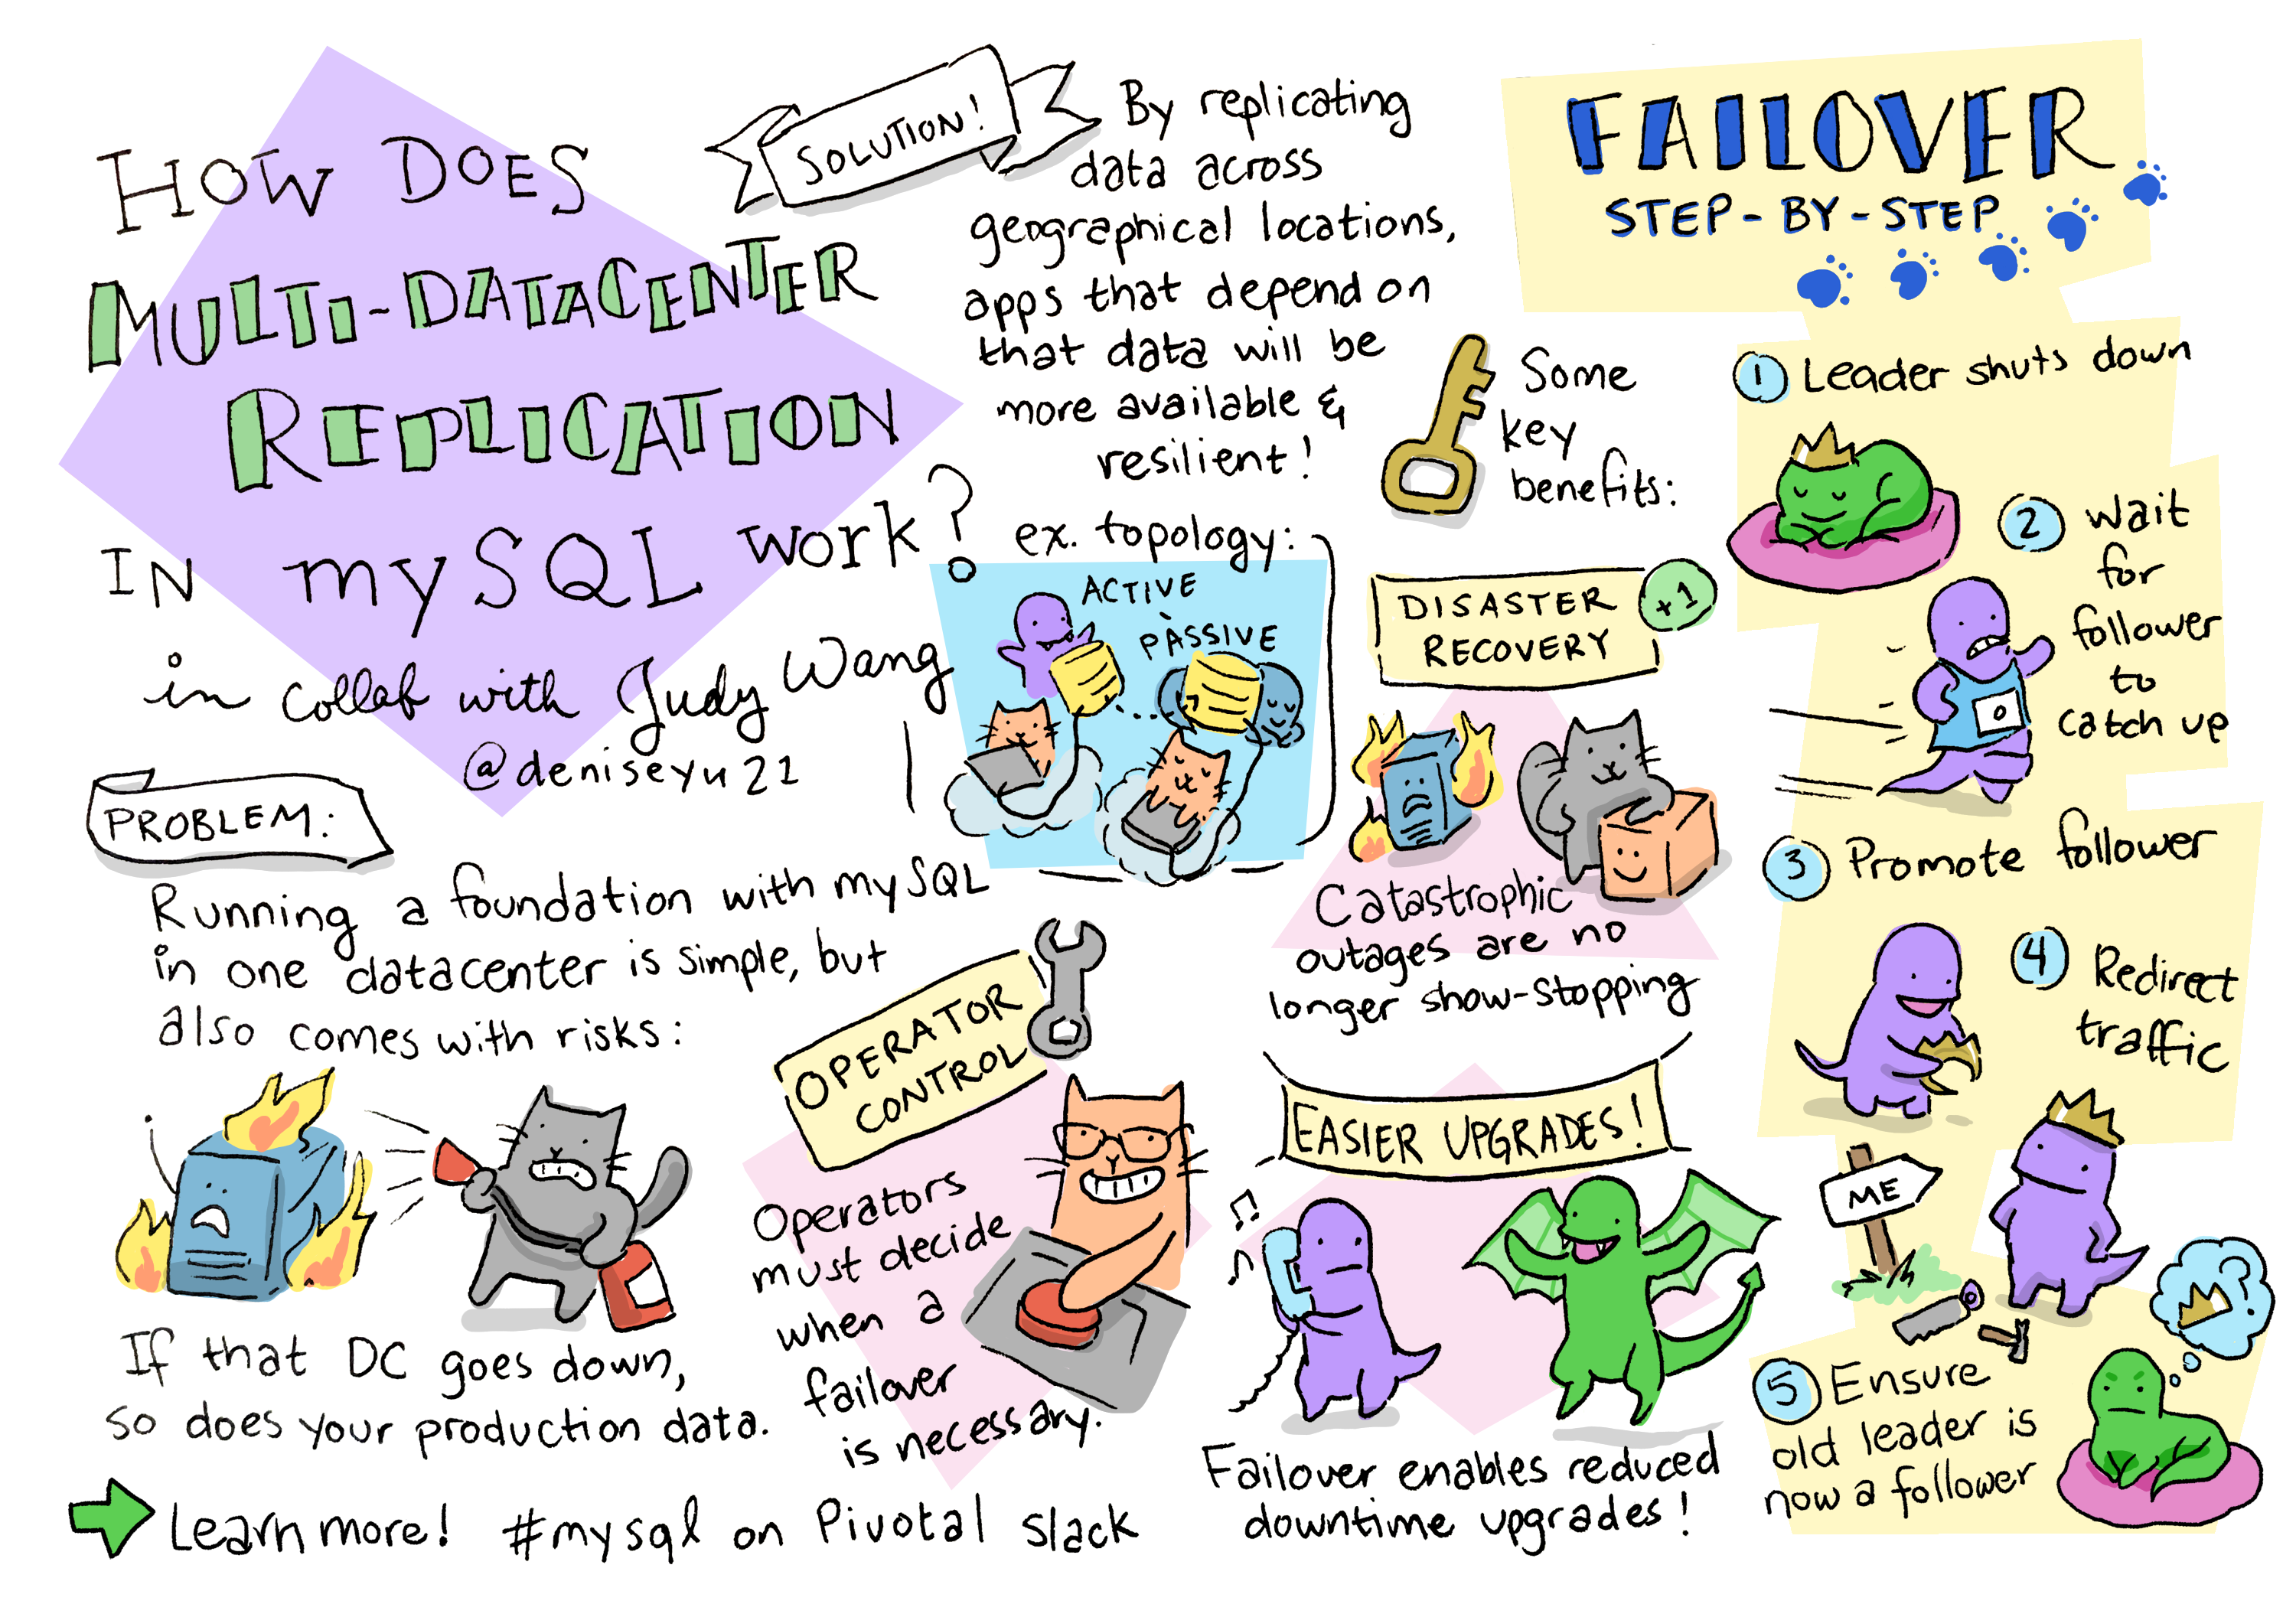 HOW DOES
MULTI-DATACENTER
REPLICATION
IN mySQL work?
in collab with Judy Wang
@deniseyu21
PROBLEM:
Running a foundation with mySQL
in one datacenter is simple, but
also comes with risks:
If that DC goes down,
so does your production data.
Learn more! #mysql on Pivotal Slack
SOLUTION!
By replicating
data across
geographical locations,
apps that depend on
that data will be
more available &
resilient!
ex. topology:
ACTIVE
PASSIVE
Some
key
benefits:
DISASTER
RECOVERY
+1
Catastrophic
outages are no
longer show-stopping
OPERATOR
CONTROL
Operators
must decide
when a
failover
is necessary.
EASIER UPGRADES!
Failover enables reduced
downtime upgrades!
FAILOVER
STEP-BY-STEP
1 Leader shuts down
2 Wait
for
follower
to
catch up
0
3 Promote follower
4 Redirect
traffic
ME
5 Ensure
old leader is
now a follower
?